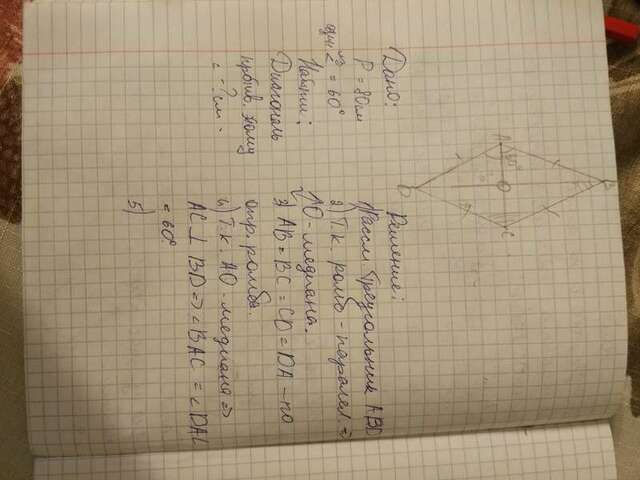 Дано:
P = 80см
один из ∠ = 60°
Найти:
Диагональ
против. этому
∠ - ? см.
A
B
C
D
O
Решение:
1) Рассм. треугольник ABD
2) Т.к. ромб - паралел. ⇒
AO - медиана.
3) AB = BC = CD = DA - по
опр. ромба.
4) Т.к. AO - медиана ⇒
AC ⊥ BD ⇒ ∠BAC = ∠DAC
= 60°
5)